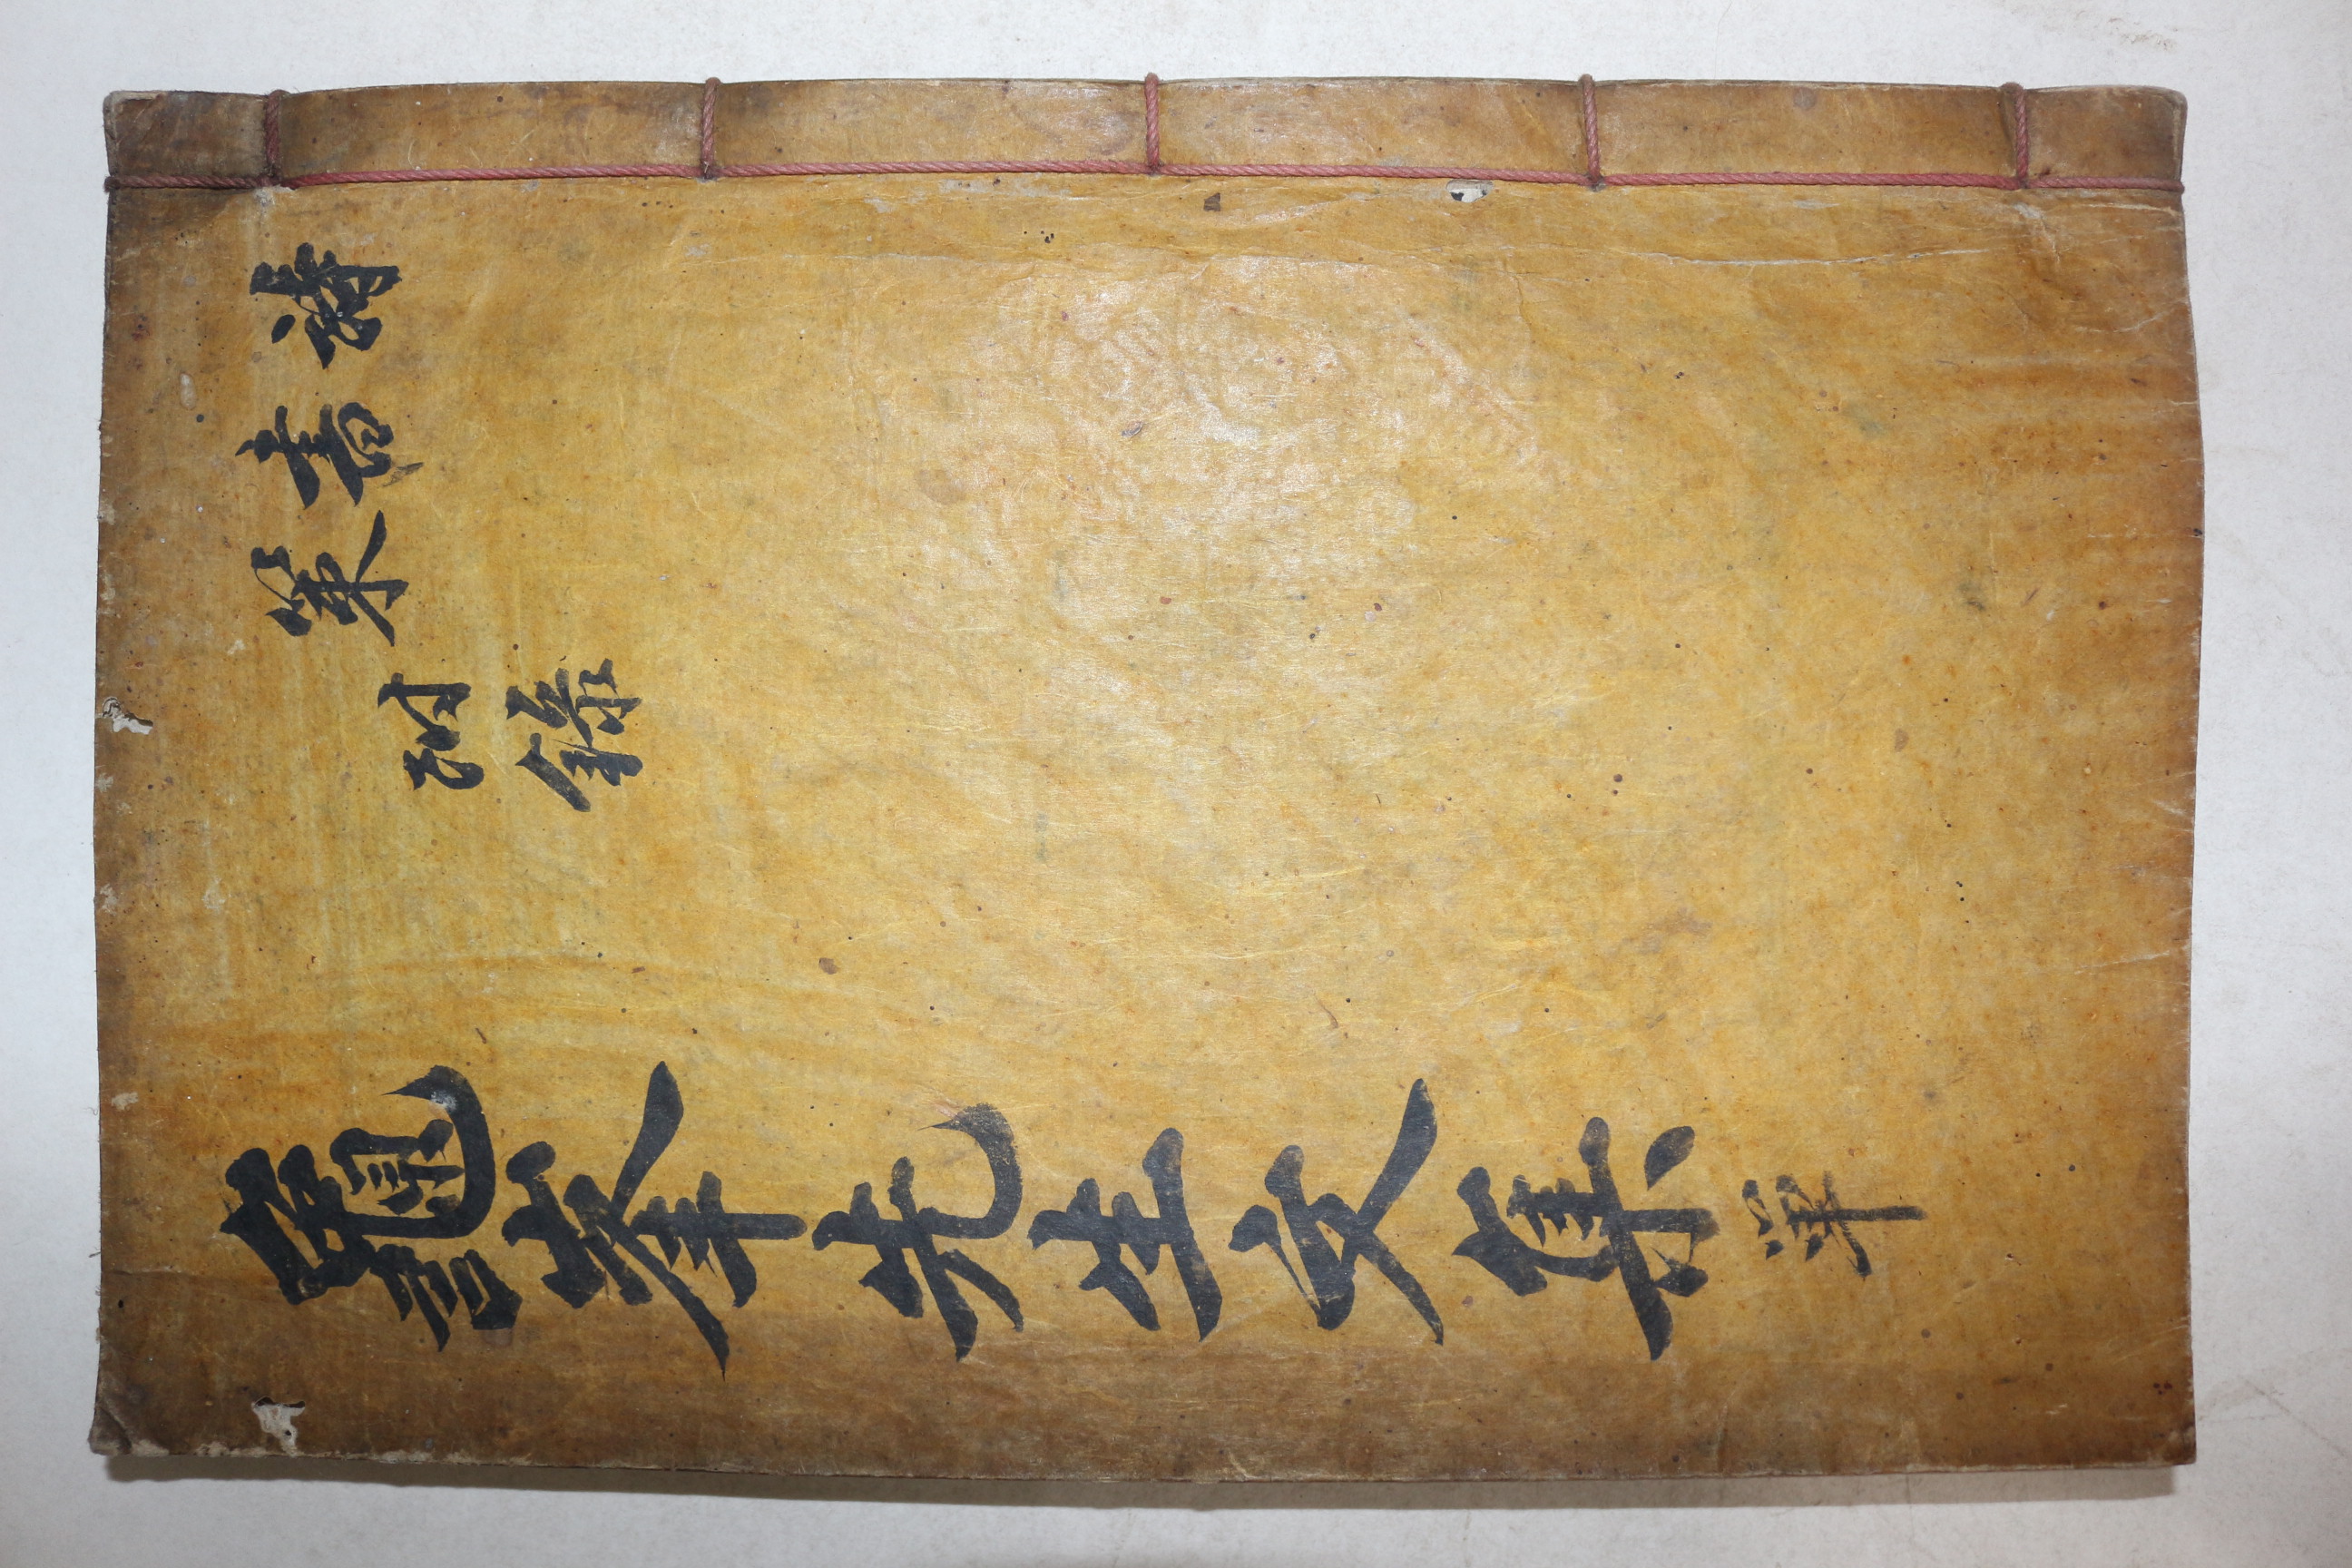 詩
書
策
附錄
龜峯先生文集 單